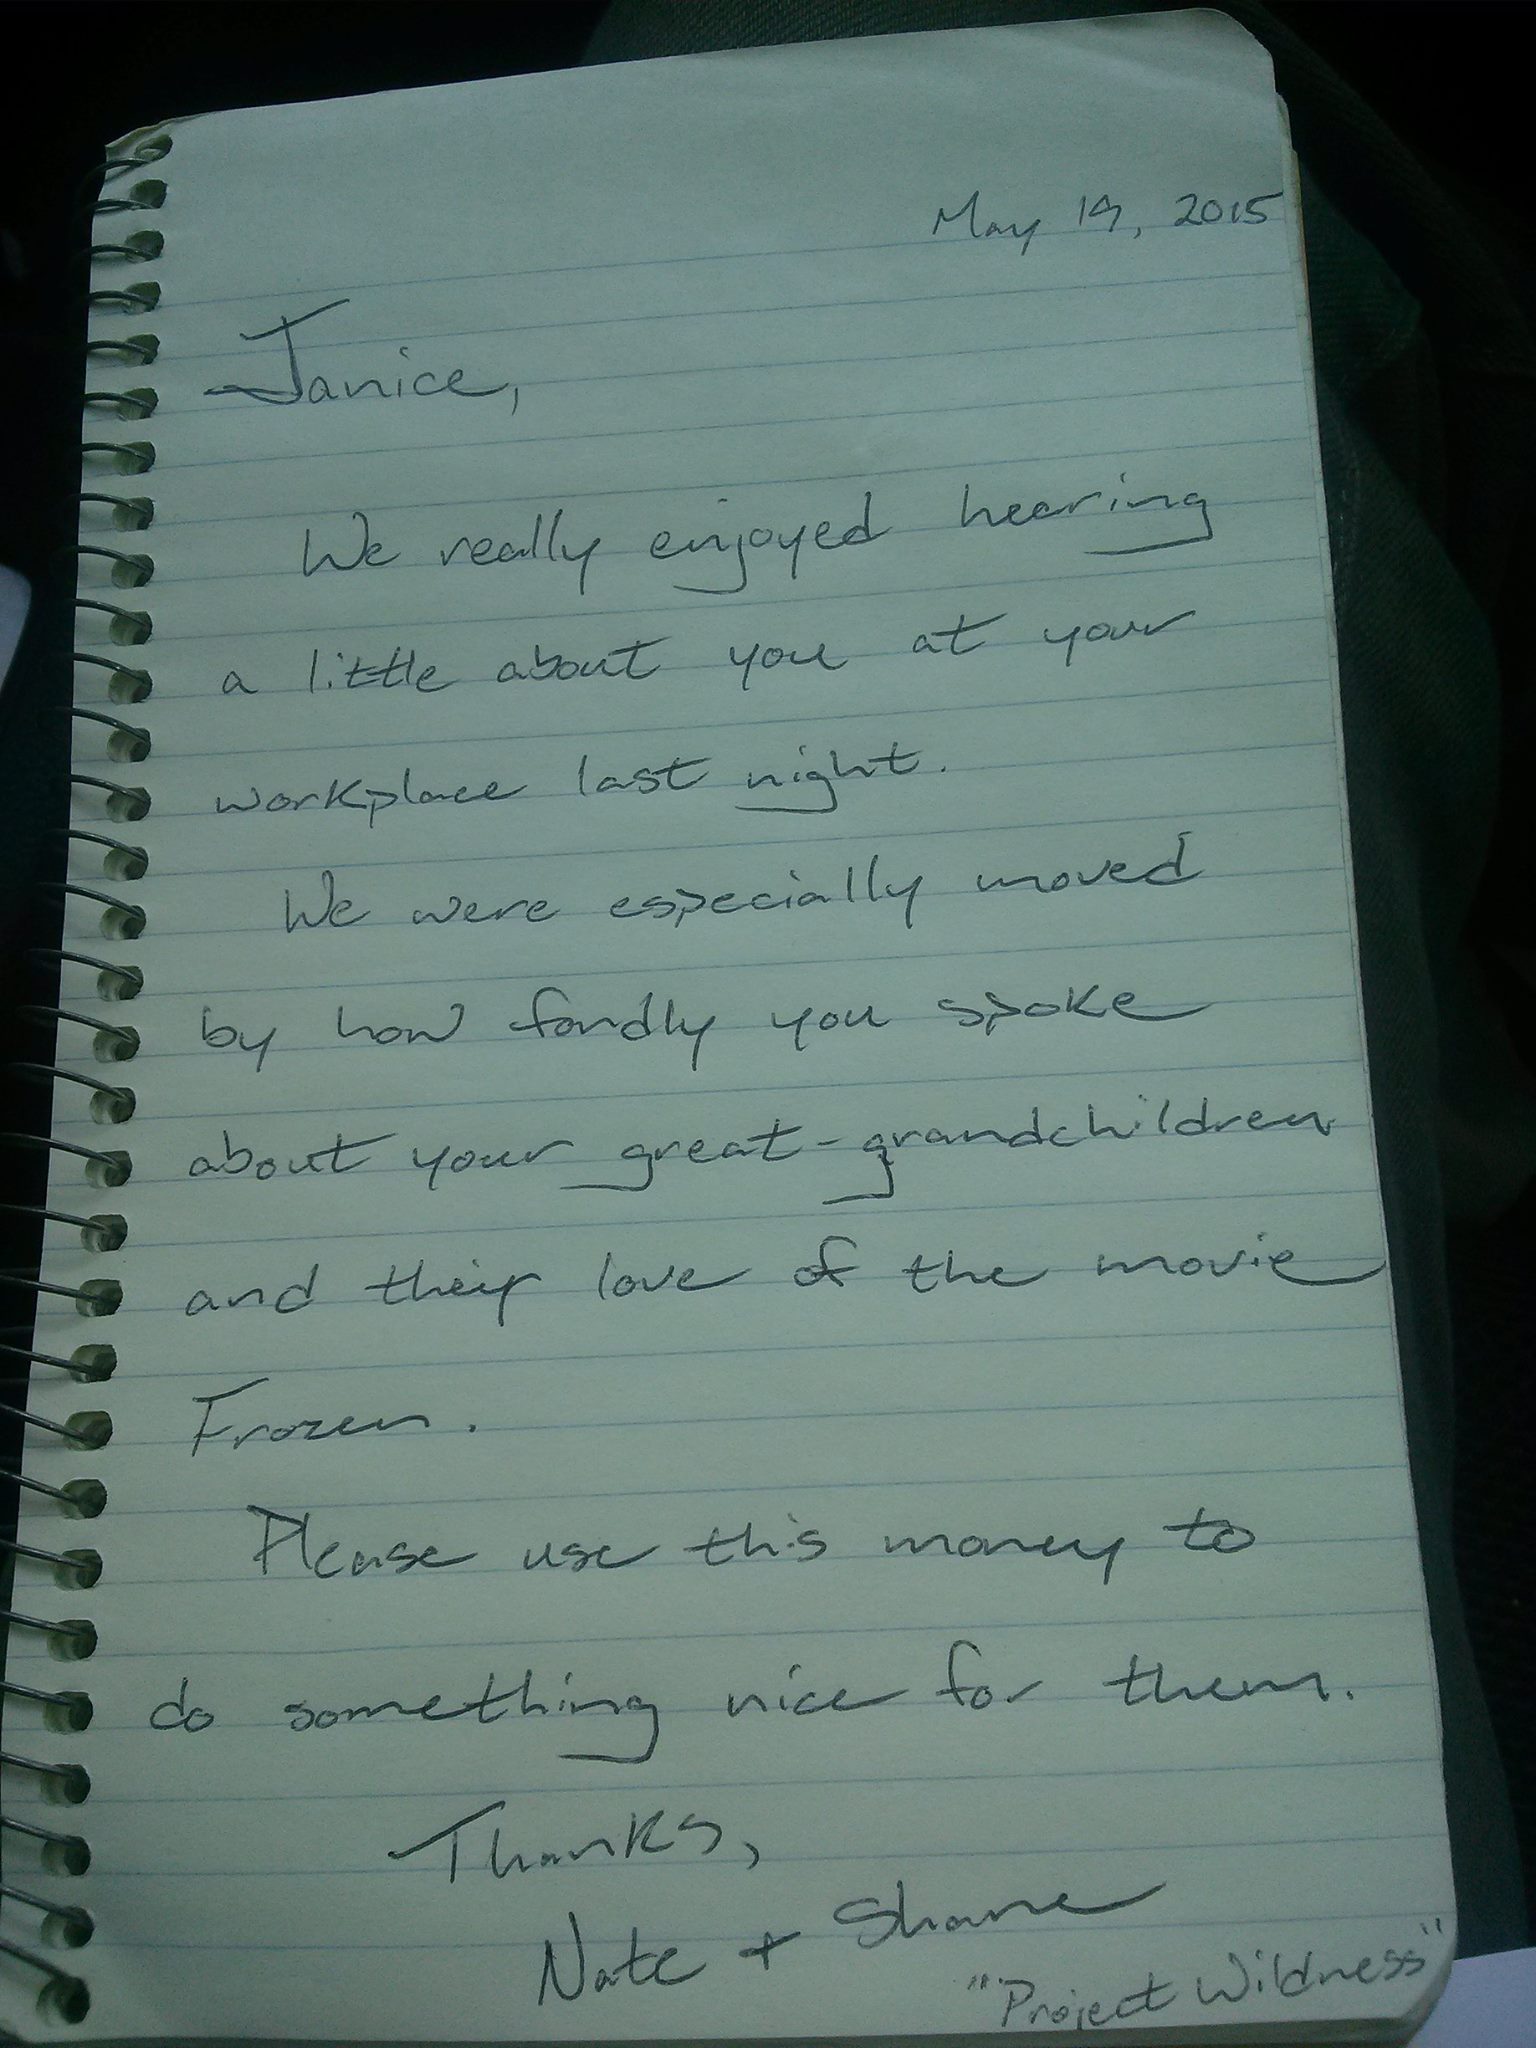 May 19, 2015
Janice,
We really enjoyed hearing
a little about you at your
workplace last night.
We were especially moved
by how fondly you spoke
about your great-grandchildren
and their love of the movie
Frozen.
Please use this money to
do something nice for them.
Thanks,
Nate + Shane
"Project Wildness"